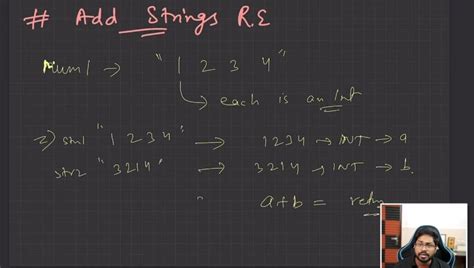 # Add Strings R.E
Num1 → "1 2 3 4"
↳ each is an Int
2) str1 "1 2 3 4" → 1234 → INT → a
str2 "3214" → 3214 → INT → b.
" a+b =